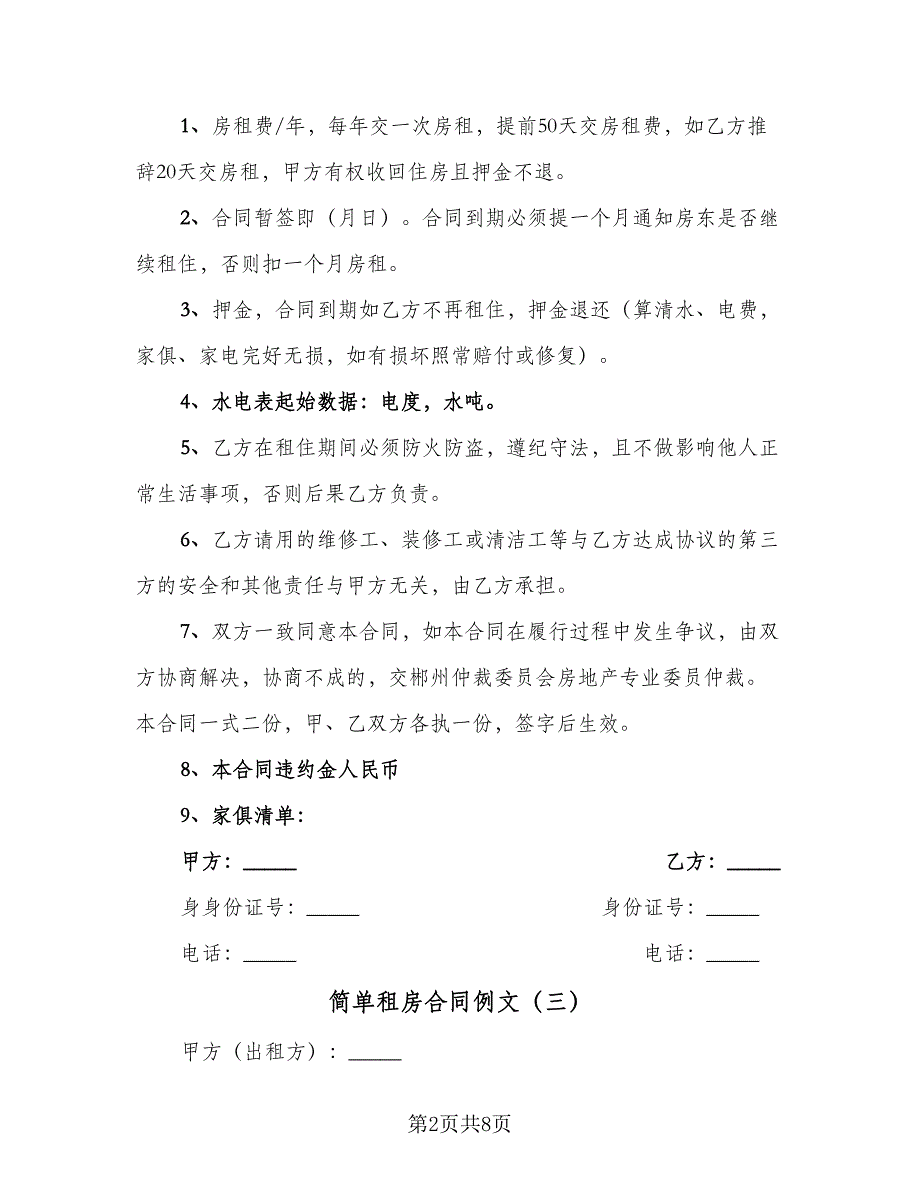 1、房租费/年，每年交一次房租，提前50天交房租费，如乙方推
辞20天交房租，甲方有权收回住房且押金不退。
2、合同暂签即（月日）。合同到期必须提一个月通知房东是否继
续租住，否则扣一个月房租。
3、押金，合同到期如乙方不再租住，押金退还（算清水、电费，
家俱、家电完好无损，如有损坏照常赔付或修复）。
4、水电表起始数据：电度，水吨。
5、乙方在租住期间必须防火防盗，遵纪守法，且不做影响他人正
常生活事项，否则后果乙方负责。
6、乙方请用的维修工、装修工或清洁工等与乙方达成协议的第三
方的安全和其他责任与甲方无关，由乙方承担。
7、双方一致同意本合同，如本合同在履行过程中发生争议，由双
方协商解决，协商不成的，交郴州仲裁委员会房地产专业委员仲裁。
本合同一式二份，甲、乙双方各执一份，签字后生效。
8、本合同违约金人民币
9、家俱清单：
甲方：_____ 乙方：_____
身身份证号：_____ 身份证号：_____
电话：_____ 电话：_____
简单租房合同例文（三）
甲方（出租方）：_____
第2页共8页